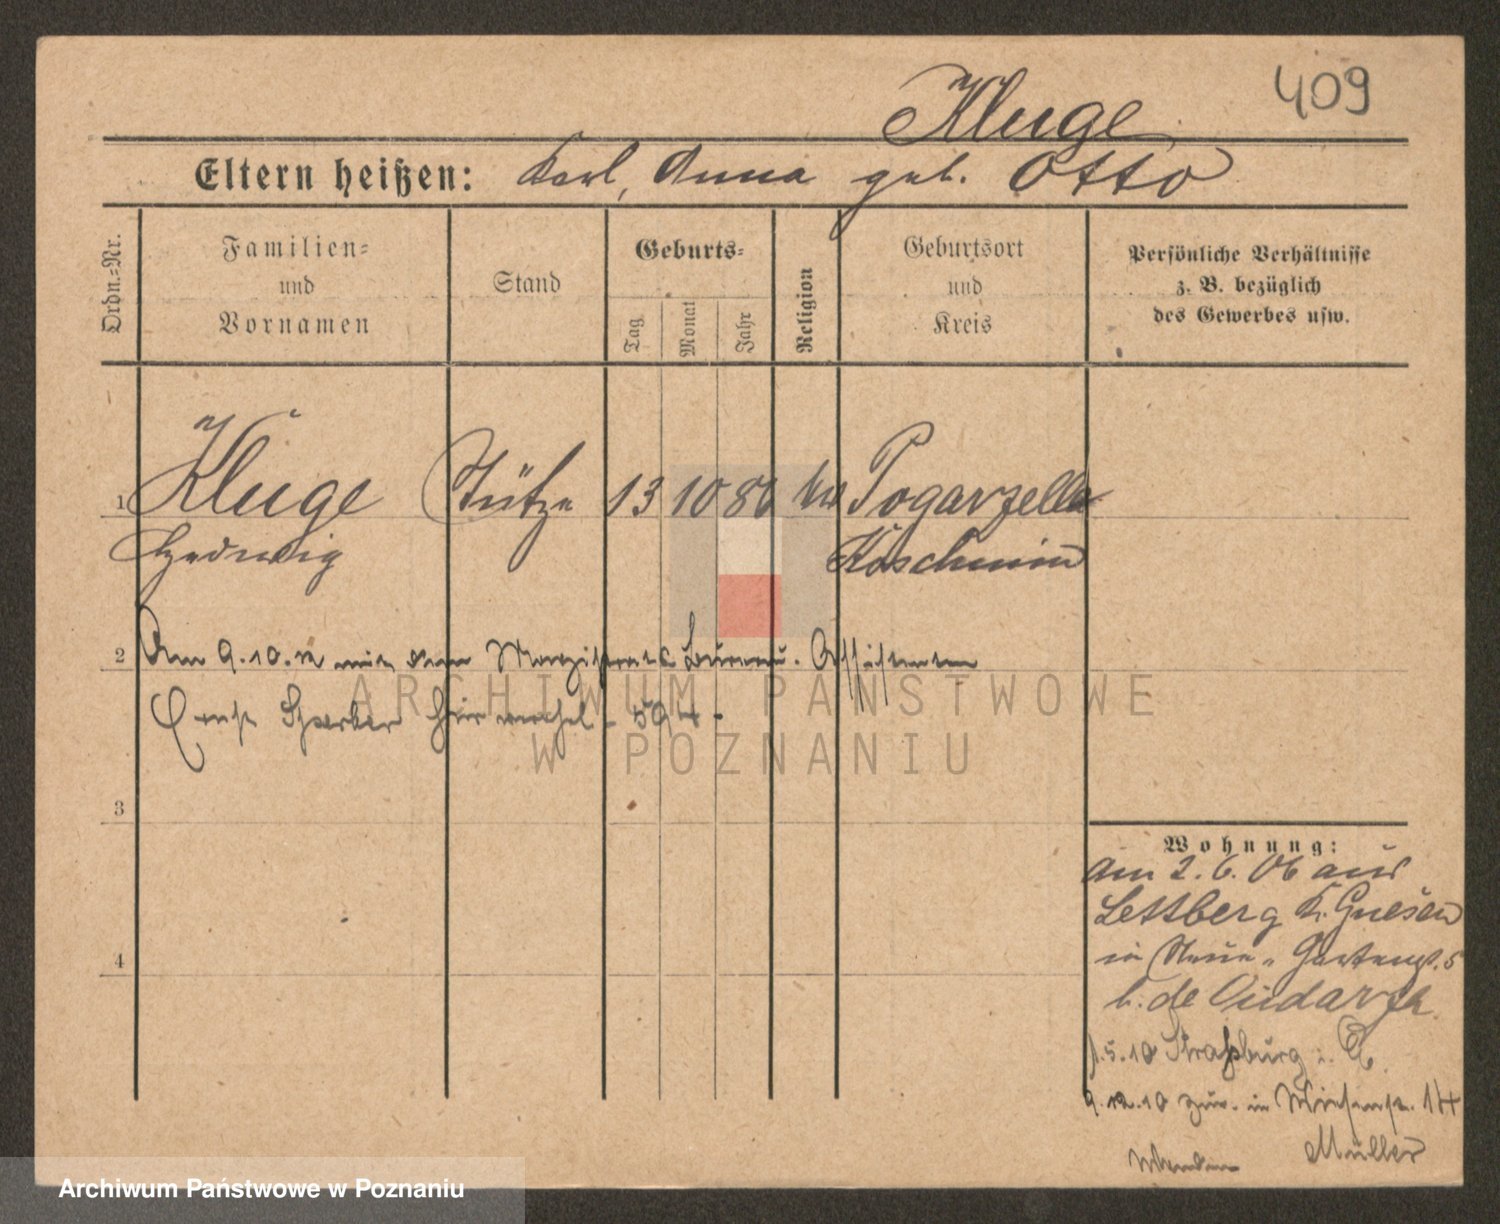 409
Kluge
Eltern heißen: Karl, Anna geb. Otto
Ordn.-Nr.
Familien-
und
Vornamen
Stand
Geburts-
Tag
Monat
Jahr
Religion
Geburtsort
und
Kreis
Persönliche Verhältnisse
z. B. bezüglich
des Gewerbes usw.
1 Kluge Stütze 13 10 86 Pogarzella
Hedwig Koschmin
2 Am 9.10. mit dem Magistrats Bureau. Assistenten
Ernst Sperber hier verehel.
3
4
Wohnung:
am 2.6.06 aus
Lettberg K. Gnesen
in Neue Gartenst. 5
b. de
1.5.10 Straßburg i. E.
9.12.10 zur. in Wiesenst. 14
Müller
ARCHIWUM PAŃSTWOWE
W POZNANIU
Archiwum Państwowe w Poznaniu